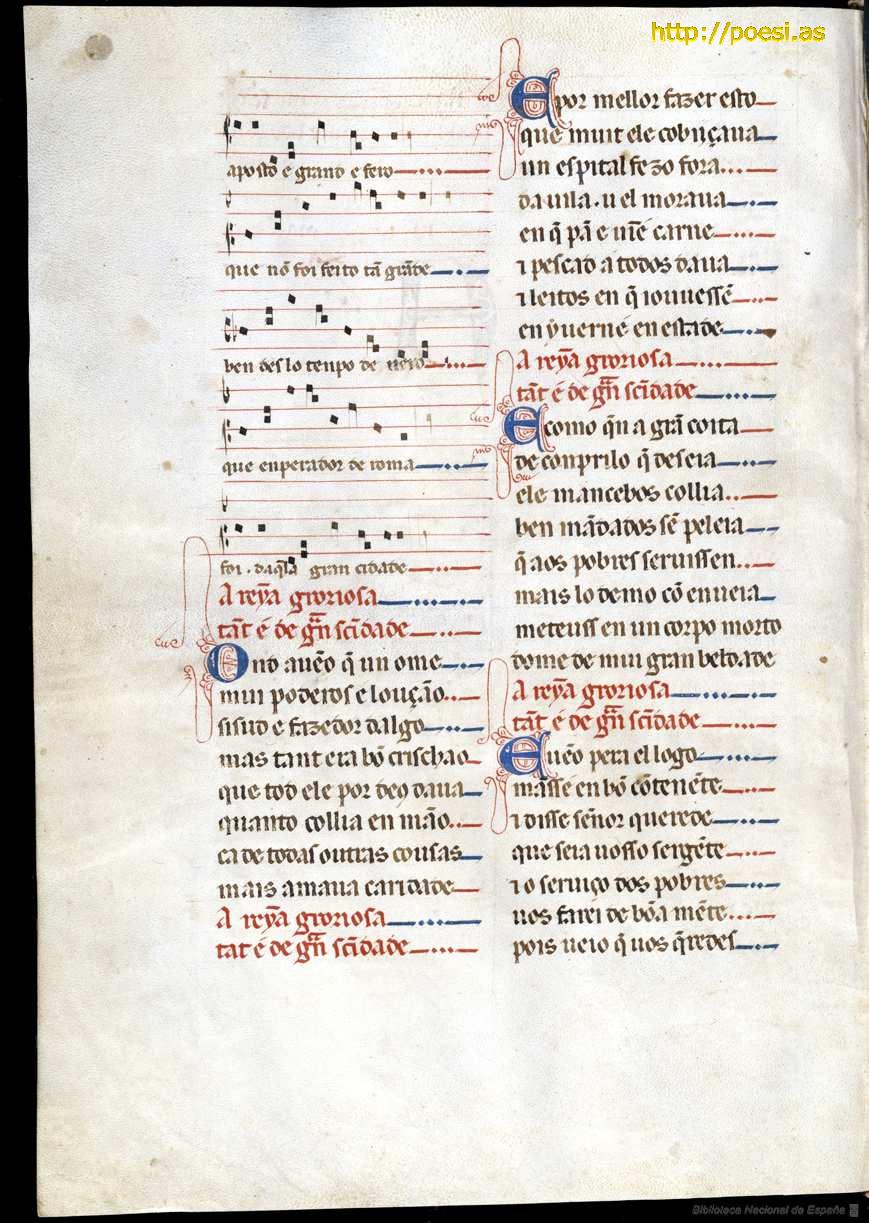 http://poesi.as
aposto e grand e fero
que nõ foi feito tã grãde
ben des lo tenpo de nero
que enperador de roma
foi . daq̃la gran cidade
A reyã groriosa
tãt é de grã sc̃idade
Ond auẽo q̃ un ome
mui poderos e loução
sisud e fazedor dalgo
mas tant era bõ crischao
que tod ele por deꝯ daua
quanto collia en mão
ca de todas outras cousas
mais amaua caridade
A reyã groriosa
tat é de grã sc̃idade
E por mellor fazer esto
que muit ele cobuçaua
un espital fezo fora
da uila . u el moraua
en q̃ pã e uiñe carne
⁊ pescad a todos daua
⁊ leitos en q̃ iouuessẽ
en yuerne en estade
A reyã groriosa
tãt é de grã sc̃idade
E como q̃n a grã coita
de conprilo q̃ deseia
ele mancebos collia
ben mãdados sẽ peleia
q̃ aos pobres seruissen
mais lo demo cõ enueia
meteuss en un corpo morto
dome de mui gran beldade
A reyã groriosa
tãt é de grã sc̃idade
E uẽo pera el logo
mãsse en bõ cõtenẽte
⁊ disse señor querede
que seia uosso sergẽte
⁊ o seruiço dos pobres
uos farei de bõa mẽte
pois ueio q̃ uos q̃redes
Biblioteca Nacional de España